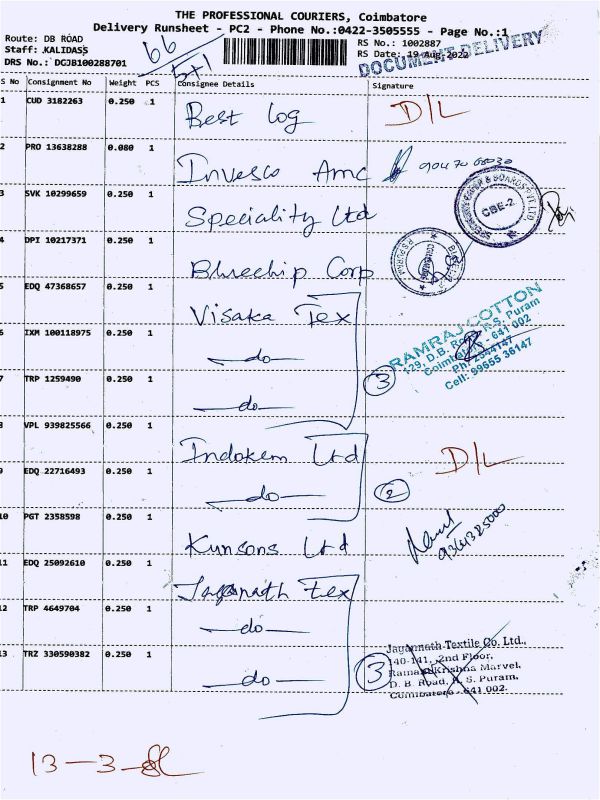 THE PROFESSIONAL COURIERS, Coimbatore
Delivery Runsheet - PC2 - Phone No.:0422-3505555 - Page No.:1
Route: DB ROAD
Staff: KALIDASS
DRS No.: DGJB100288701
66
5+1
RS No.: 1002887
RS Date: 19-Aug-2022
DOCUMENT DELIVERY
S No Consignment No Weight PCS Consignee Details Signature
1 CUD 3182263 0.250 1 Best Log D/L
2 PRO 13638288 0.080 1 Invesco Amc
3 SVK 10299659 0.250 1 Speciality Ltd
CBE-2
4 DPI 10217371 0.250 1 Bluechip Corp
5 EDQ 47368657 0.250 1 Visaka Tex
6 IXM 100118975 0.250 1 —do—
7 TRP 1259490 0.250 1 —do— 3
RAMRAJ COTTON
129, D.B. Road, R.S. Puram
Coimbatore - 641 002
Ph: 2544147
Cell: 99655 36147
8 VPL 939825566 0.250 1 Indokem Ltd D/L
9 EDQ 22716493 0.250 1 —do— 2
10 PGT 2358598 0.250 1 Kunsons Ltd
11 EDQ 25092610 0.250 1 Jagannath Tex
12 TRP 4649704 0.250 1 —do—
13 TRZ 330590382 0.250 1 —do— 3
Jagannath Textile Co. Ltd.,
140-141, 2nd Floor,
Ramakrishna Marvel,
D. B. Road, R. S. Puram,
Coimbatore - 641 002.
13-3-